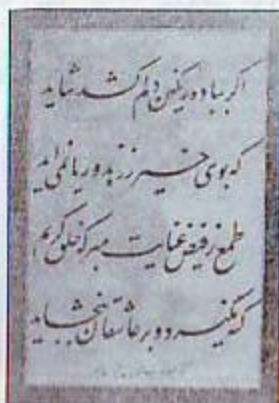 اگر بباده رنگین دلم کشد شاید
که بوی خیر ز زهد و ریا نمی‌آید
طمع ز فیض عنایت مبر که خلق کریم
گنه ببخشد و بر عاشقان ببخشاید